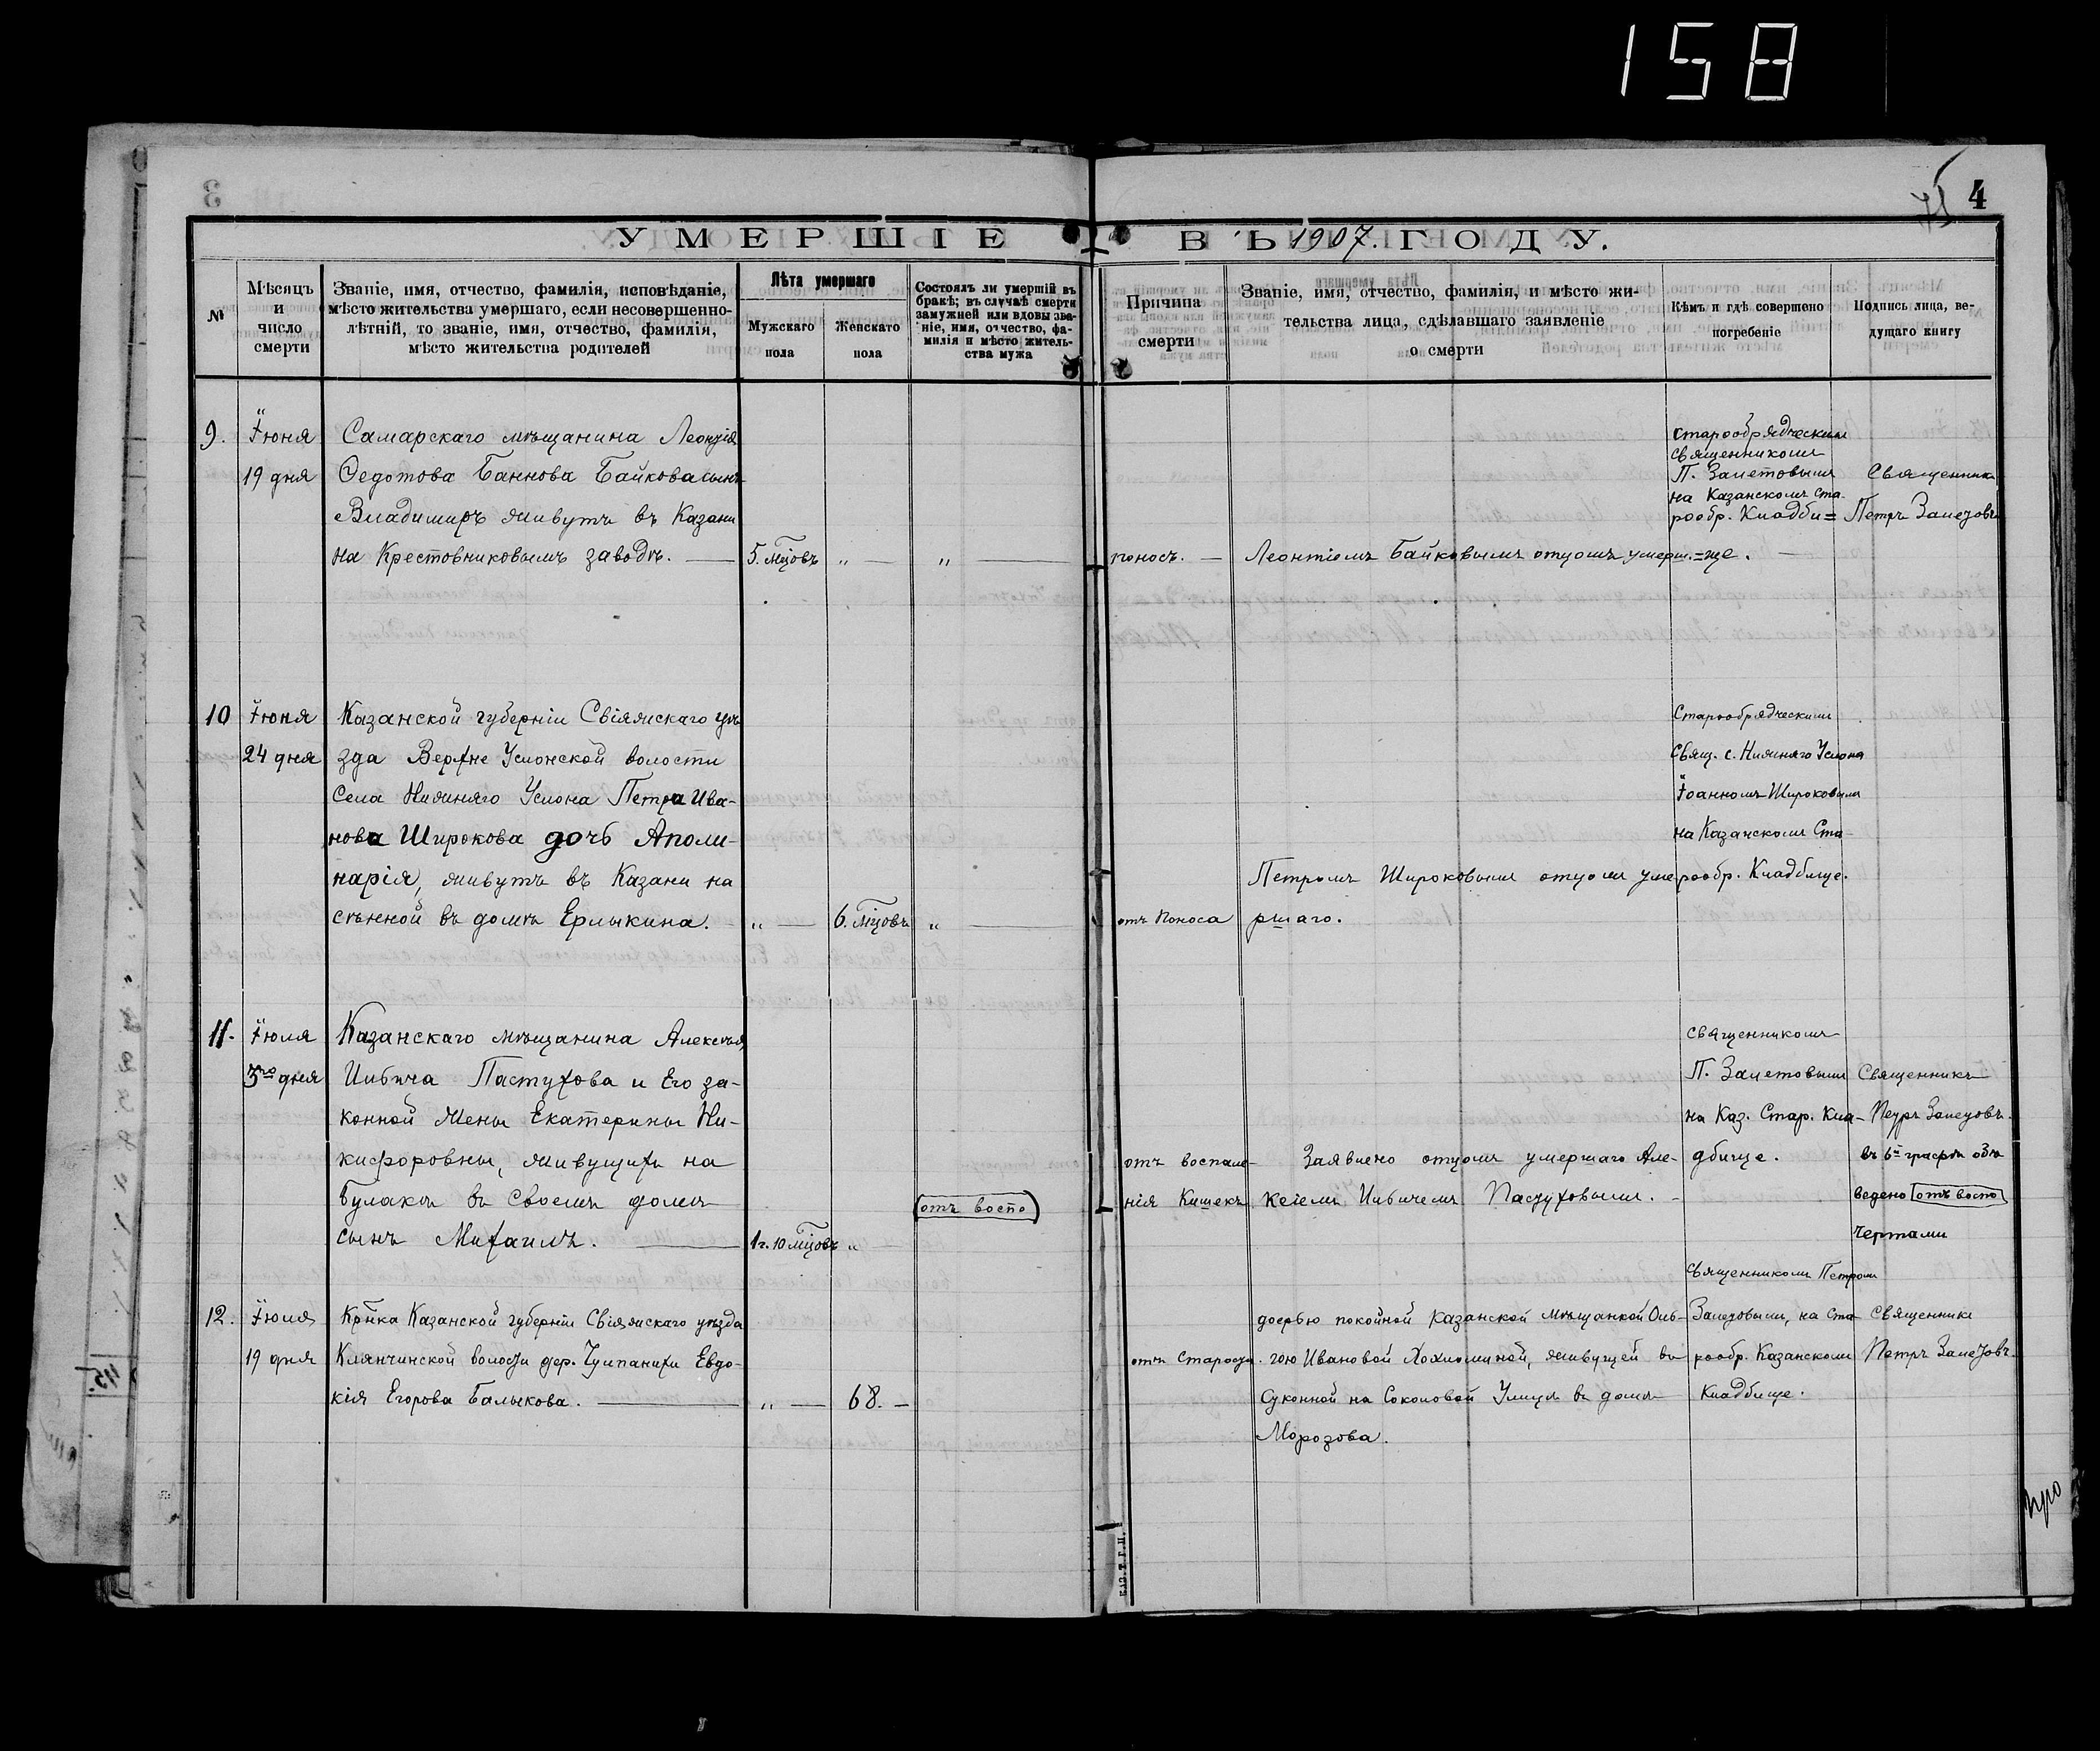 158
4
УМЕРШІЕ
ВЪ 1907. ГОДУ.
№
Мѣсяцъ
и
число
смерти
Званіе, имя, отчество, фамилія, исповѣданіе,
мѣсто жительства умершаго, если несовершенно-
лѣтній, то званіе, имя, отчество, фамилія,
мѣсто жительства родителей
Лѣта умершаго
Мужскаго
пола
Женскаго
пола
Состоялъ ли умершій въ
бракѣ; въ случаѣ смерти
замужней или вдовы зва-
ніе, имя, отчество, фа-
милія и мѣсто житель-
ства мужа
Причина
смерти
Званіе, имя, отчество, фамилія, и мѣсто жи-
тельства лица, сдѣлавшаго заявленіе
о смерти
Кѣмъ и гдѣ совершено
погребеніе
Подпись лица, ве-
дущаго книгу
9.
Іюня
19 дня
Самарскаго мѣщанина Леонтія
Федотова Баннова Байкова сынъ
Владимиръ живутъ въ Казани
на Крестовниковымъ заводѣ.
5. мцовъ
„
„
поносъ.
Леонтіемъ Байковымъ отцомъ умерш.
старообрядческимъ
священникомъ
П. Залетовымъ
на Казанскомъ ста-
рообр. Кладби=
=ще.
Священникъ
Петръ Залетовъ
10
Іюня
24 дня
Казанской губерніи Свіяжскаго уѣ
зда Верхне Услонской волости
Села Нижняго Услона Петра Ива-
нова Широкова дочь Аполи-
нарія, живутъ въ Казани на
сѣнной въ домѣ Ерлыкина.
„
6. мцовъ
„
отъ поноса
Петромъ Широковымъ отцомъ уме
ршаго.
Старообрядческимъ
Свящ. с. Нижняго Услона
Іоанномъ Широковымъ
на Казанскомъ Ста-
рообр. Кладбище.
11.
Іюля
3го дня
Казанскаго мѣщанина Алексѣя
Ильича Пастухова и Его за-
конной жены Екатерины Ни-
кифоровны, живущихъ на
Булакѣ въ своемъ домѣ
сынъ Михаилъ.
1 г. 10 мцовъ
„
отъ воспо
отъ воспале-
нія Кишекъ
Заявлено отцомъ умершаго Але-
ксіемъ Ильичемъ Пастуховымъ.
священникомъ
П. Залетовымъ
на Каз. Стар. Кла-
дбище.
Священникъ
Петръ Залетовъ.
въ 6й графѣ обве
ведено отъ воспо
чертами
12.
Іюля
19 дня
Крѣнка Казанской губерніи Свіяжскаго уѣзда
Клянчинской волости дер. Гулпанихи Евдо-
кія Егорова Балыкова.
„
68.
отъ Старости
дочерью покойной казанской мѣщанкой Оль-
гою Ивановой Хохломиной, живущей въ
Суконной на Соколовой Улицѣ въ домѣ
Морозова.
Священникомъ Петромъ
Залетовымъ, на Ста
рообр. Казанскомъ
Кладбище.
Священникъ
Петръ Залетовъ.
про